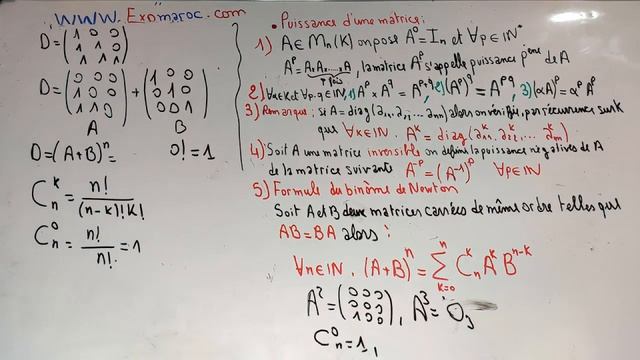 WWW. Exomaroc.com
D=(1 0 0
1 1 0
1 1 1)
D=(0 0 0
1 0 0
1 1 0)+(1 0 0
0 1 0
0 0 1)
A B
D=(A+B)ⁿ= 0!=1
Cₙᵏ = n!/((n-k)!k!)
Cₙ⁰ = n!/n! = 1
• Puissance d'une matrice:
1) A∈Mₙ(K) on pose A⁰=Iₙ et ∀p∈IN*
Aᵖ=A×A×...×A, la matrice Aᵖ s'appelle puissance pᵉᵐᵉ de A
p fois
2) ∀α∈K et ∀p,q∈IN, 1) Aᵖ×A^q=A^(p+q), 2) (Aᵖ)^q=A^(pq), 3) (αA)ᵖ=αᵖAᵖ
3) Remarque: si A=diag(a₁₁, a₂₂... aₙₙ) alors on vérifie, par récurrence sur k
que ∀k∈IN. Aᵏ=diag(a₁₁ᵏ, a₂₂ᵏ, ... aₙₙᵏ)
4) Soit A une matrice inversible on définit la puissance négatives de A
de la matrice suivante A⁻ᵖ=(A⁻¹)ᵖ ∀p∈IN
5) Formule du binôme de Newton
Soit A et B deux matrices carrées de même ordre telles que
AB=BA alors:
∀n∈IN. (A+B)ⁿ=∑ₖ₌₀ⁿ Cₙᵏ Aᵏ Bⁿ⁻ᵏ
A²=(0 0 0
0 0 0
1 0 0), A³=O₃
Cₙ⁰=1,